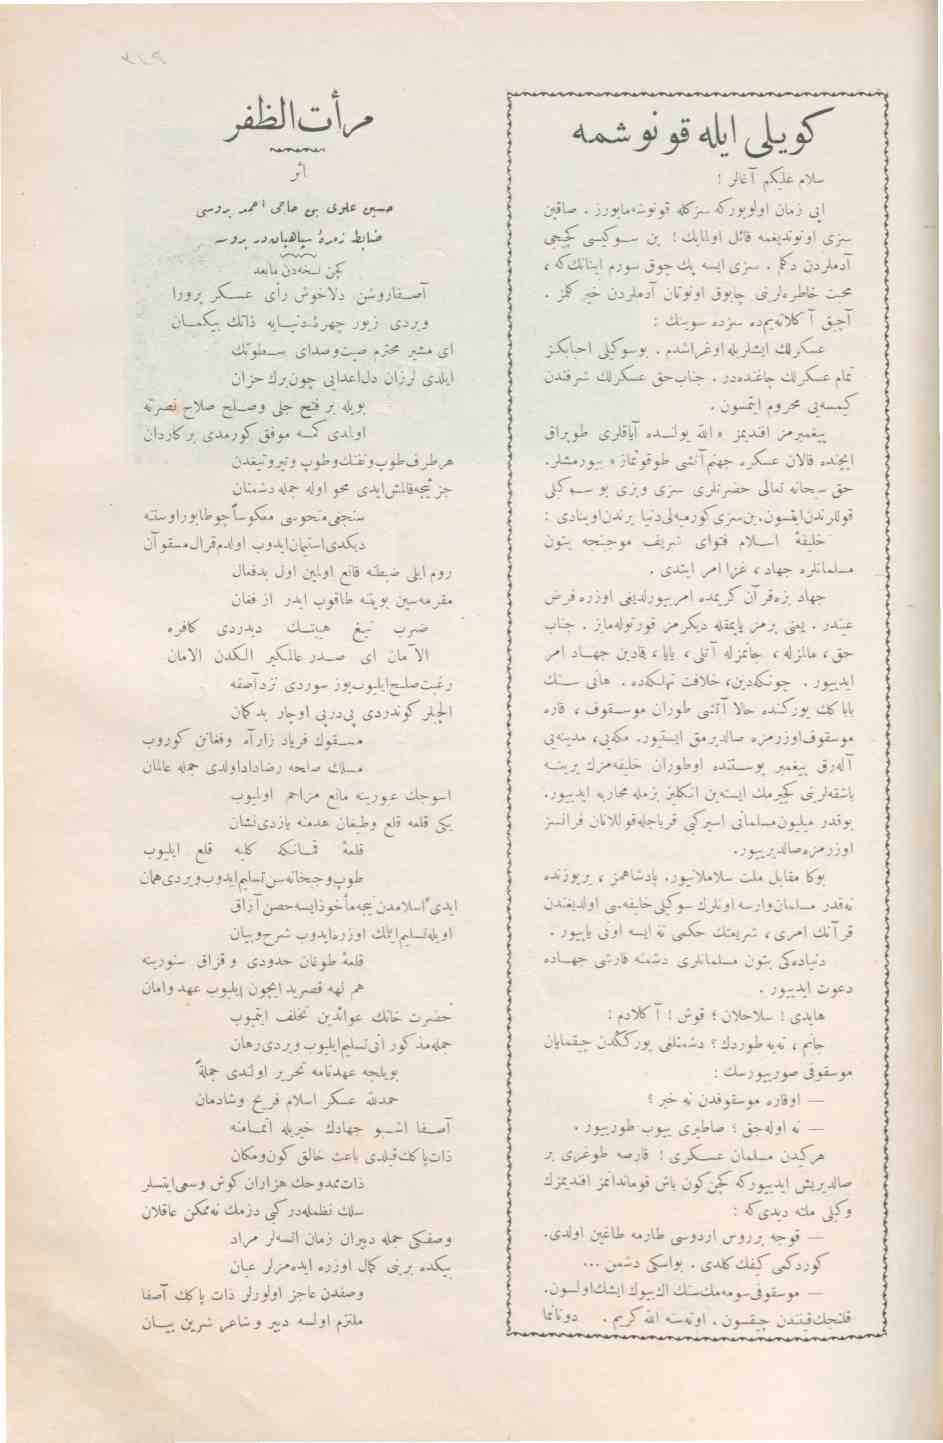 كويلى ايله قونوشمه
سلام عليكم آغالر !
ايى زمان اولويوركه سزكله قونوشه‌مايورز . صاقين
سزى اونوتديغمه قائل اولمايك ! بن سوكيسى كچيجى
آدملردن دكلم . سزى ايسه پك چوق سورم اينانك‌كه ،
محبت خاطره‌لرينى چابوق اونوتان آدملردن خير كلمز .
آچيق آكلاته‌يم‌ده سزده سوينك :
عسكرلك ايشلريله اوغراشدم . بوسوكيلى احبابكز
تمام عسكرلك چاغنده‌در . جناب حق عسكرلك شرفندن
كيمسه‌يى محروم ايتمسون .
پيغمبرمز افنديمز « الله يولنده آياقلرى طوپراق
ايچنده قالان عسكره جهنم آتشى طوقونماز » بيورمشلر.
حق سبحانه تعالى حضرتلرى سزى وبزى بو سوكيلى
قوللرندن ايتسون. بن سزى كورميه‌لى دنيا يرندن اوينادى :
خليفهٔ اسلام فتواى شريف موجبنجه بتون
مسلمانلره جهاد ، غزا امر ايتدى .
جهاد بزه قرآن كريمده امر بيورلديغى اوزره فرض
عيندر . يعنى برمز ياپمقله ديكرمز قورتوله‌مايز . جناب
حق ، مالمزله ، جانمزله آتلى ، يايا ، قادين جهاد امر
ايدييور . چونكه دين، خلافت تهلكه‌ده . هانى سنك
باباكك يوركنده حالا آتشى طوران موسقوف ، قاره
موسقوف اوزرمزه صالديرمق ايستيور. مكه‌يى، مدينه‌يى
آله‌رق پيغمبر پوستنده اوطوران خليفه‌مزك يرينه
باشقه‌لرينى كچيرمك ايسته‌ين انكليز بزمله محاربه ايدييور.
بوقدر ميليون مسلمانى اسير كبى قرباجله قوللانان فرانسز
اوزرمزه صالديرييور.
بوكا مقابل ملت سلاحلانيور. پادشاهمز ، يريوزنده
نه‌قدر مسلمان وارسه اونلرك سوكيلى خليفه‌سى اولديغندن
قرآنك امرى ، شريعتك حكمى نه ايسه اونى ياپيور .
دنياده‌كى بتون مسلمانلرى دشمنه قارشى جهاده
دعوت ايدييور .
هايدى ! سلاحلان ؛ قوش ! آكلادم :
جانم ، نه‌يه طوردك ؟ دشمنلغى يوركڭدن چيقمايان
موسقوفى صورييورسك :
— اوقاره موسقوفدن نه خبر ؟
— نه اوله‌جق ؛ صاطيرى ييوب طورييور .
هركيدن مسلمان عسكرى ! قارصه طوغرى بر
صالديريش ايدييوركه كچن كون باش قوماندانمز افنديمزك
وكيلى ملته ديدى‌كه :
— قوجه برروس اردوسى طارمه طاغين اولدى.
كوردكمى كيفك كلدى . بواسكى دشمن ...
— موسقوفى سومه‌مك سنك اك بيوك ايشك اولسون.
قلنجك قيندن چيقسون . اوته‌سنه الله كريم . دونانما
مرأت الظفر
اثر
حسين علوى بن حاجى احمد بروسى
ضابط زمرهٔ سپاهيان در بروسه
كچن نسخه‌دن مابعد
آصفاروشن دلاخوش رأى عسكر پرورا
ويردى زيور چهرهٔ دنيايه ذاتك بيكمان
اى مشير محترم صيت وصداى سطوتك
ايلدى لرزان دل اعدايى چون برك خزان
بويله بر فتح جلى وصلح صلاح نصرته
اولدى كمسه موفق كورمدى بركاردان
هرطرف طوپ وتفنك وطوپ وتير وتيغدن
جزئيجه قالمش ايدى محو اوله جمله دشمنان
سنجغى منحوسى معكوساً چو طابور اوستنه
ديكدى استيمان ايدوب اولدم قرال مسقوآن
روم ايلى ضبطنه قانع اولمين اول بدفعال
مقرمه‌سين بويننه طاقوب ايدر از فغان
ضرب تيغ هيبتك ديدردى كافره
الآمان اى صدر عالمكير الكدن الامان
رغبت صلح ايليوب يوز سوردى نزد آصفه
الچيلر كوندردى پى درپى اوچار بدكمان
مسقوك فرياد زارآه وفغانن كوروب
مسلك صلحه رضاداد اولدى جمله عالمان
اسوجك عبورينه مانع مزاحم اولميوب
يكى قلعه قلع وطيغان هدمنه يازدى نشان
قلعهٔ قمانكه كلبه قلع ايليوب
طوپ وجبخانه‌سن تسليم ايدوب ويردى همان
ايدى اسلامدن نيجه مأخوذ ايسه حصن آزاق
اويله تسليم ايتمك اوزره ايدوب شرح وبيان
قلعهٔ طوغان حدودى و قزاق سنورينه
هم لهه قصريد ايچون ايليوب عهد وامان
حضرت خانك عوائدين تخلف ايتميوب
جمله مذكور انى تسليم ايليوب ويردى رهان
بويلجه عهدنامه تحرير اولندى جملةً
حمدلله عسكر اسلام فريح وشادمان
آصفا اشبو جهادك خيريله اتمامنه
ذات پاكك قيلدى باعث خالق كون ومكان
ذات ممدوحك هزاران كوش وسعى ايتسه‌لر
سلك نظمله در كبى دزمك نه ممكن عاقلان
وصفكى جمله دبيران زمان ايتسه‌لر مراد
بيكده برينى كمال اوزره ايده‌مزلر عيان
وصفدن عاجز اولورلر ذات پاكك آصفا
ملتزم اولسه دبير وشاعر شيرين بيان